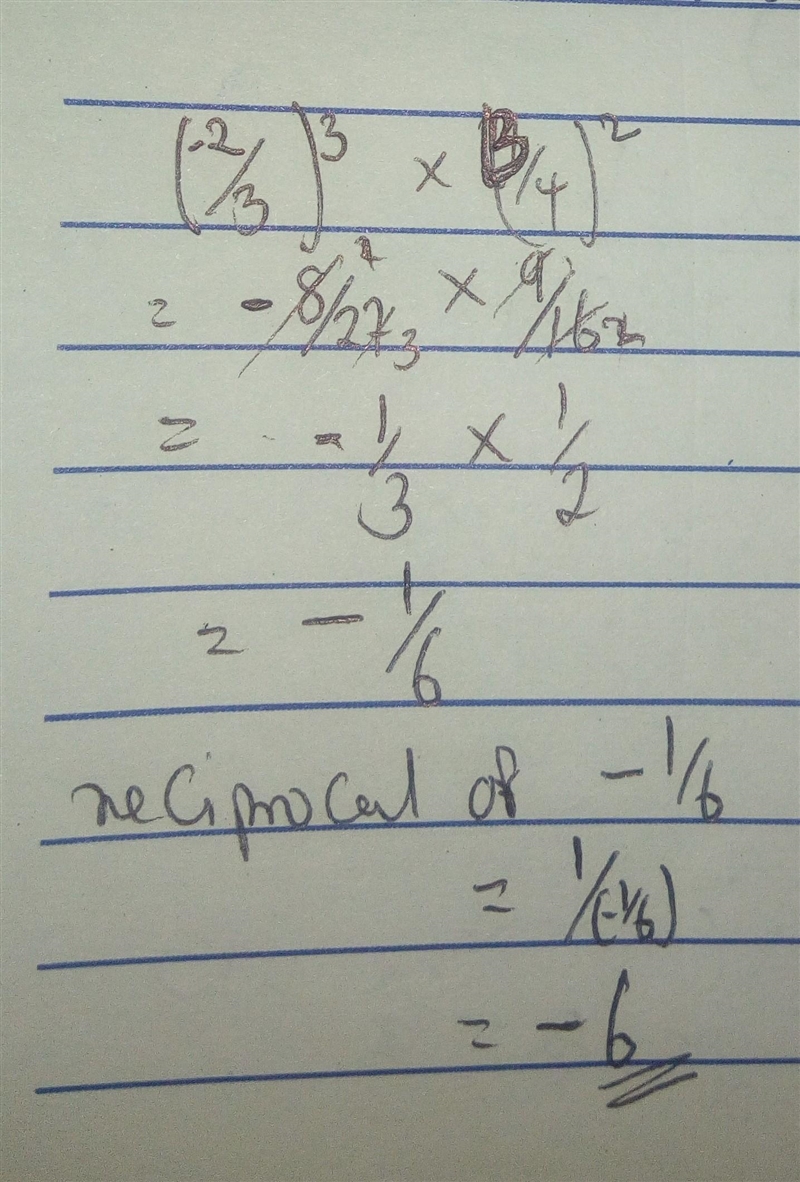 (-2/3)³ × (3/4)²
= -8/27 3 × 9/16 2
= -1/3 × 1/2
= -1/6
reciprocal of -1/6
= 1/(-1/6)
= -6